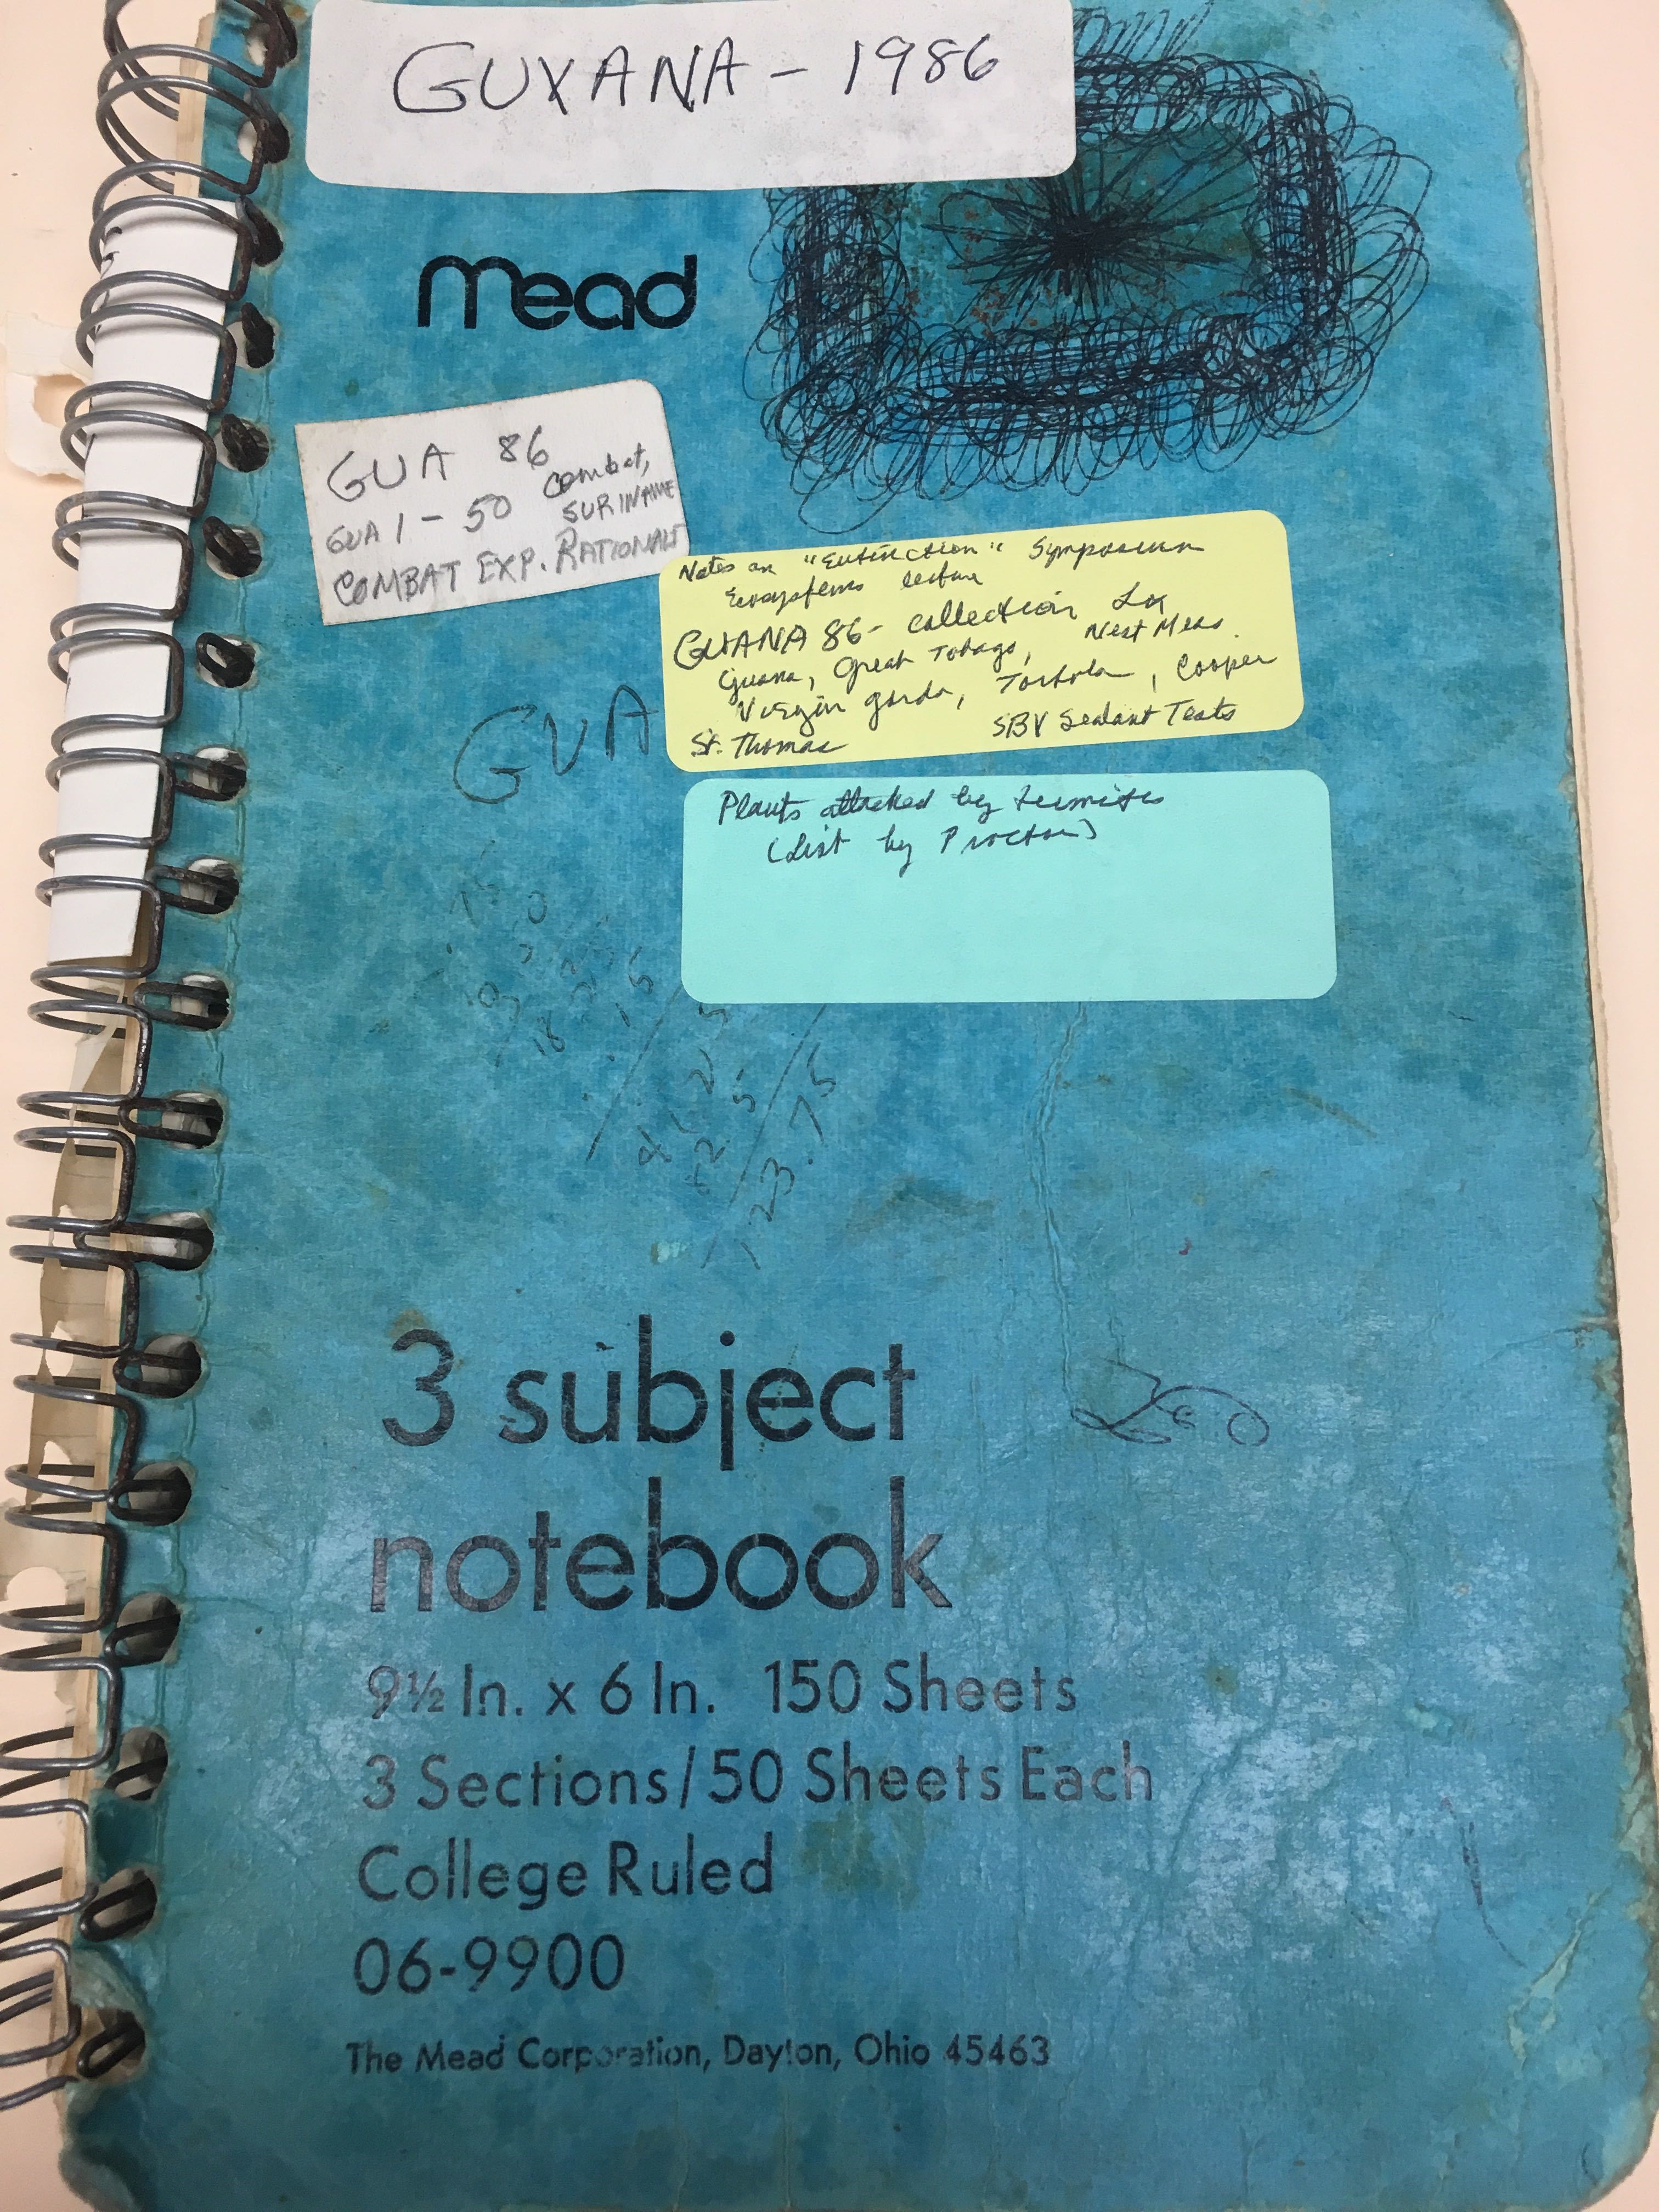 GUYANA - 1986
mead
GUA 86
Combat,
GUA 1 - 50 SURINAME
COMBAT EXP. RATIONALE
Notes on "Extinction" Symposium
Ecosystems lecture
GUANA 86 - collection
Guana, Great Tobago, Nest Meas.
Virgin gorda, Tortola, Cooper
St. Thomas SBV Sealant Tests
GUA
Plants attacked by termites
(List by Proctor)
123.75
3 subject
notebook
9½ In. x 6 In. 150 Sheets
3 Sections/50 Sheets Each
College Ruled
06-9900
The Mead Corporation, Dayton, Ohio 45463